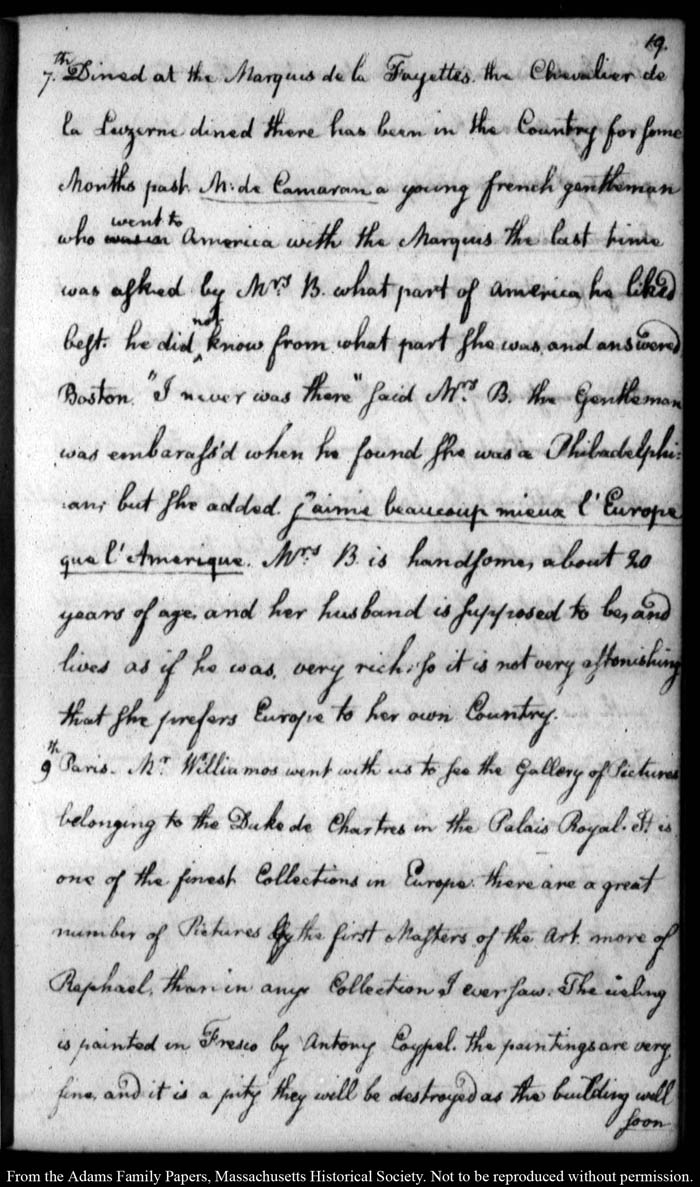 19.
7.th Dined at the Marquis de la Fayettes. the Chevalier de
la Luzerne dined there has been in the Country for some
Months past. M: de Camaran a young french gentleman
went to
who was in America with the Marquis the last time
was asked by Mrs. B. what part of America he liked
best. he did not know from what part she was, and answered
Boston. "I never was there" said Mrs. B. the Gentleman
was embarass'd when he found she was a Philadelphi-
an; but she added. j'aime beaucoup mieux l'Europe
que l'Amerique. Mrs. B. is handsome, about 20
years of age, and her husband is supposed to be, and
lives as if he was, very rich; so it is not very astonishing
that she prefers Europe to her own Country.
9th Paris. Mr. Williamos went with us to see the Gallery of Pictures
belonging to the Duke de Chartres in the Palais Royal. It is
one of the finest Collections in Europe. there are a great
number of Pictures by the first Masters of the Art. more of
Raphael, than in any Collection I ever saw. The cieling
is painted in Fresco by Antony Coypel. the paintings are very
fine, and it is a pity they will be destroyed as the building will
soon
From the Adams Family Papers, Massachusetts Historical Society. Not to be reproduced without permission.